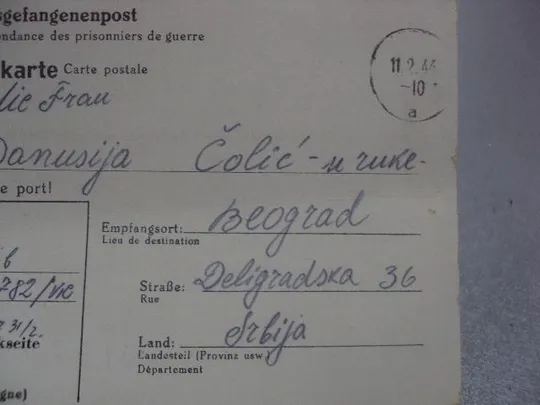 sgefangenenpost
ondance des prisonniers de guerre
karte Carte postale
11.2.44
-10
a
die Frau
Danusija Čolić - u ruke -
e port!
Empfangsort: Beograd
Lieu de destination
b
782/VIC
Straße: Deligradska 36
Rue
31/2
kseite
Land: Srbija
Landesteil (Provinz usw.)
Département
gne)